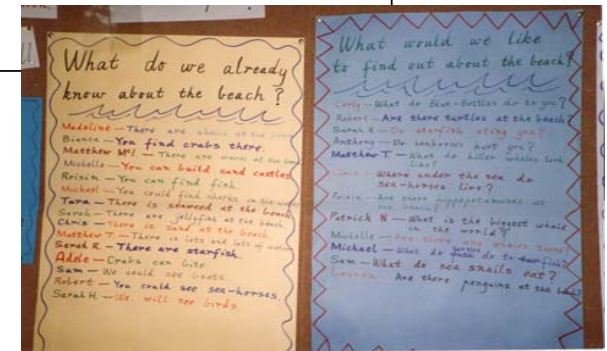 What do we already
know about the beach?
Madeline — There are shells at the
Bianca — You find crabs there.
Matthew McI. — There are waves at the
Michelle — You can build sand castles
Roisin — You can find fish.
Michael — You could find sharks in the water
Tara — There is seaweed at the beach
Sarah — There are jellyfish at the beach
Chris — There is sand at the beach
Matthew T. — There is lots and lots of water
Sarah R. — There are starfish.
Adele — Crabs can bite.
Sam — We could see boats.
Robert — You could see sea-horses.
Sarah H. — We will see birds.
What would we like
to find out about the beach?
Carly — What do Blue-Bottles do to you?
Robert — Are there turtles at the beach?
Sarah R — Do starfish sting you?
Anthony — Do seahorses hurt you?
Matthew T. — What do killer whales look
like?
Where under the sea do
sea-horses live?
Roisin — Are there hippopotamuses at
the beach?
Patrick N — What is the biggest whale
in the world?
Michelle — Are there any whales there?
Michael — What do do to fish?
Sam — What do sea snails eat?
Are there penguins at the beach?